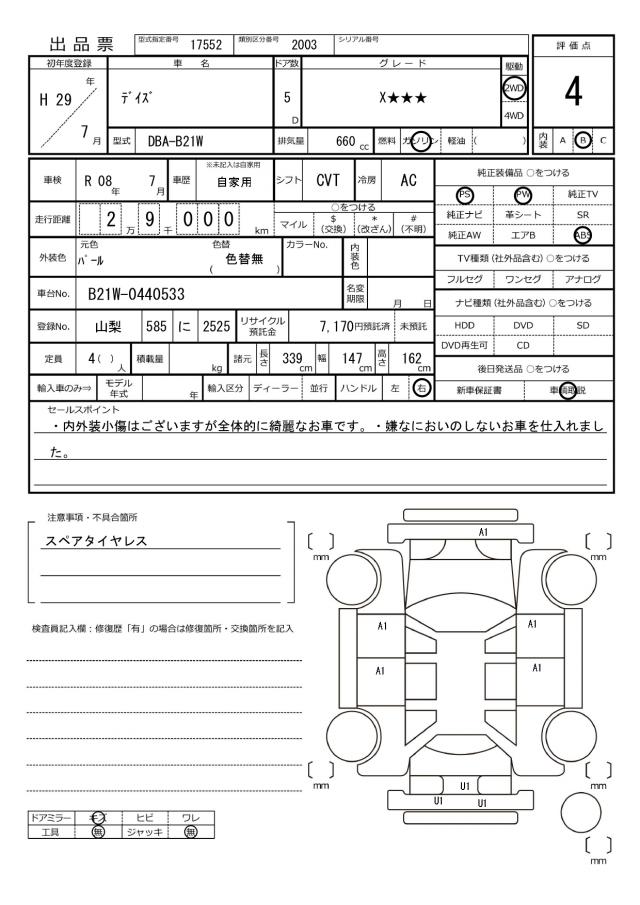 出品票 型式指定番号 17552 類別区分番号 2003 シリアル番号
評価点
初年度登録 車名 ドア数 グレード 駆動
H 29 年 7 月 ﾃﾞｲｽﾞ 5 D X★★★ 2WD 4WD
4
型式 DBA-B21W 排気量 660 cc 燃料 ガソリン 軽油 ( )
内装 A B C
車検 R 08 年 7 月 車歴 ※未記入は自家用 自家用 シフト CVT 冷房 AC
走行距離 2 万 9 千 0 0 0 km
○をつける
マイル $ (交換) * (改ざん) # (不明)
外装色 元色 ﾊﾟｰﾙ 色替 ( 色替無 ) カラーNo. 内装色
車台No. B21W-0440533 名変期限 月 日
登録No. 山梨 585 に 2525 リサイクル預託金 7,170円預託済 未預託
定員 4( ) 人 積載量 kg 諸元 長さ 339 cm 幅 147 cm 高さ 162 cm
輸入車のみ⇒ モデル年式 年 輸入区分 ディーラー 並行 ハンドル 左 右
純正装備品 ○をつける
PS PW 純正TV
純正ナビ 革シート SR
純正AW エアB ABS
TV種類(社外品含む)○をつける
フルセグ ワンセグ アナログ
ナビ種類(社外品含む)○をつける
HDD DVD SD
DVD再生可 CD
後日発送品 ○をつける
新車保証書 車輌取説
セールスポイント
・内外装小傷はございますが全体的に綺麗なお車です。・嫌なにおいのしないお車を仕入れまし
た。
注意事項・不具合箇所
スペアタイヤレス
検査員記入欄：修復歴「有」の場合は修復箇所・交換箇所を記入
A1
mm mm
A1 A1
A1 A1
mm mm
U1
U1 U1
mm
ドアミラー キズ ヒビ ワレ
工具 無 ジャッキ 無